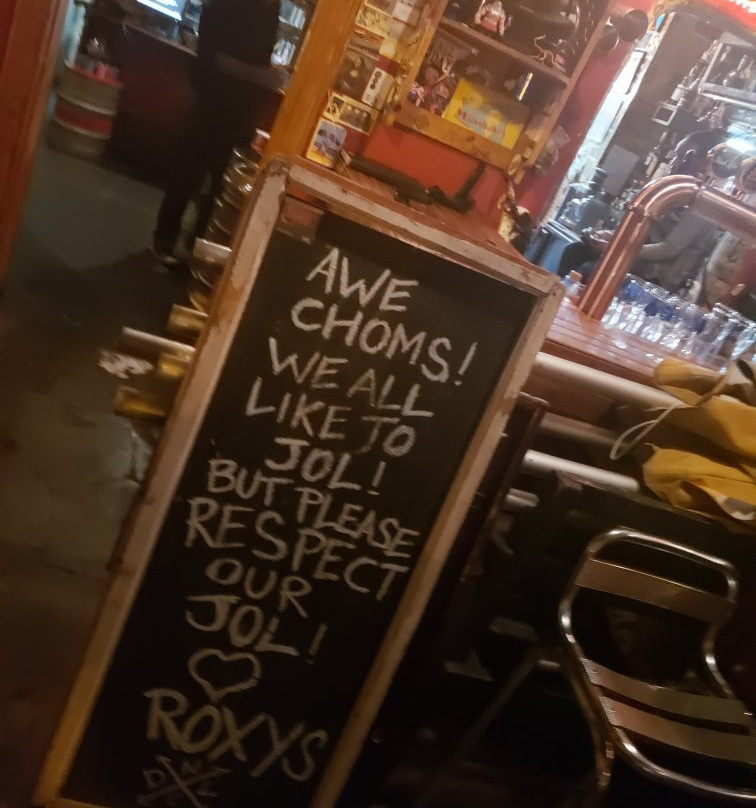 AWE
CHOMS!
WE ALL
LIKE TO
JOL!
BUT PLEASE
RESPECT
OUR
JOL!
ROXYS